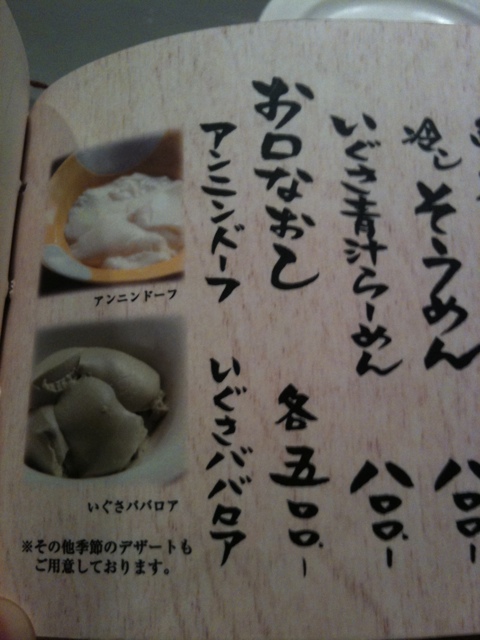 冷しそうめん
八〇〇.ー
いぐさ青汁らーめん
八〇〇.ー
お口なおし
各五〇〇.ー
アンニンドーフ
いぐさババロア
アンニンドーフ
いぐさババロア
※その他季節のデザートも
ご用意しております。